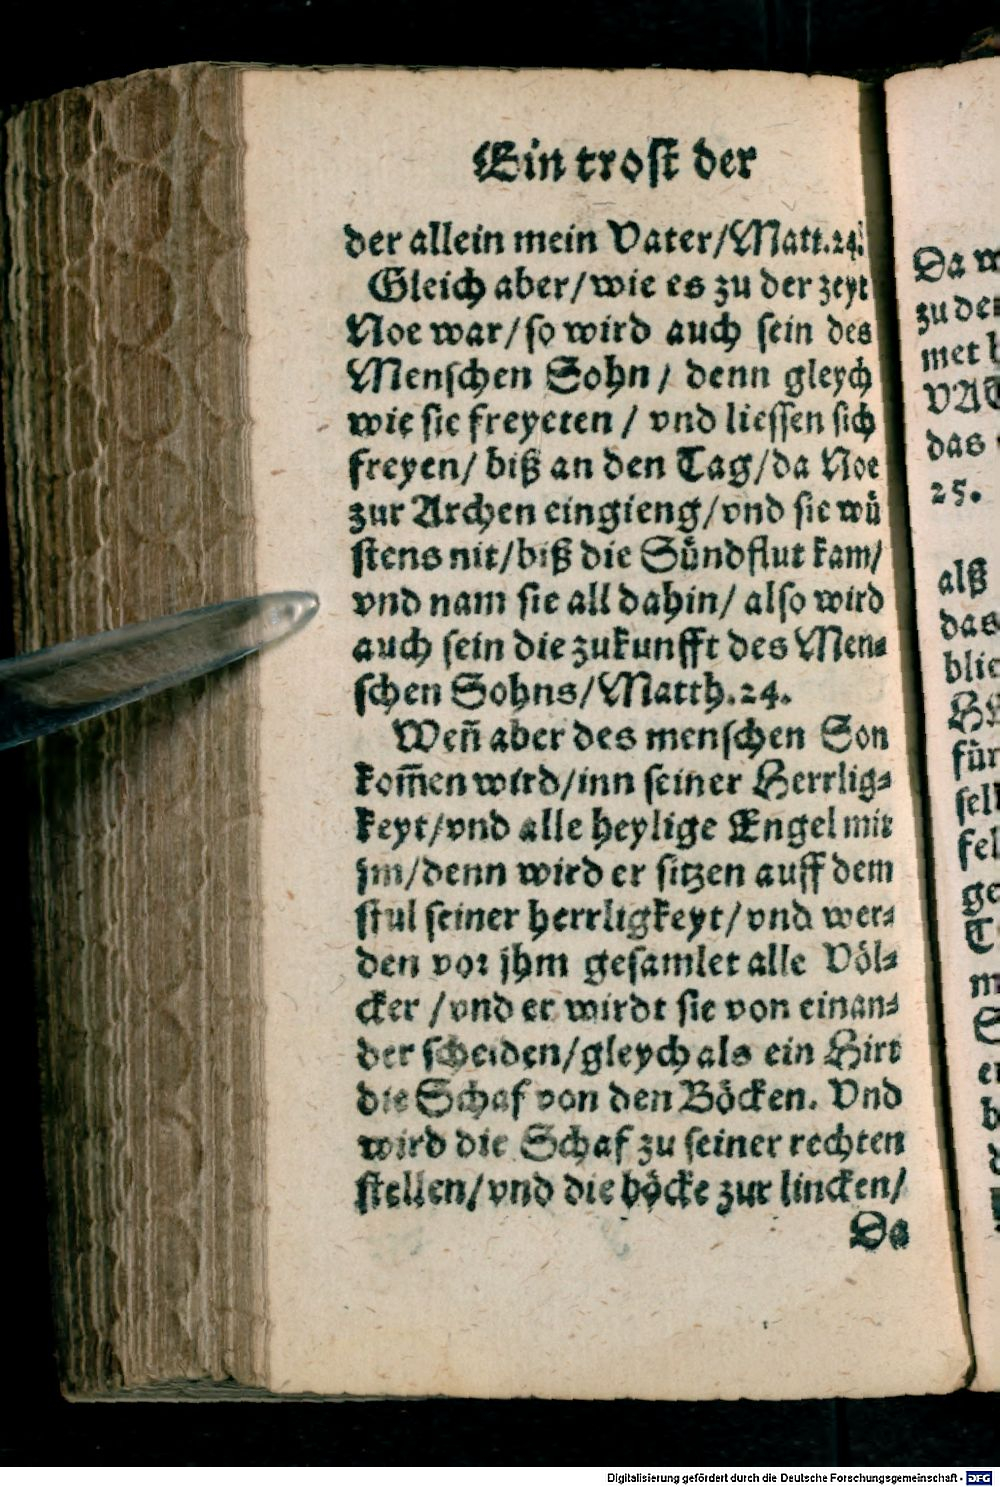 Ein trost der
der allein mein Vater/Matt.24.
Gleich aber/wie es zu der zeyt
Noe war/so wird auch sein des
Menschen Sohn/ denn gleych
wie sie freyeten / vnd liessen sich
freyen/ biß an den Tag/da Noe
zur Archen eingieng/vnd sie wü
stens nit/biß die Sündflut kam/
vnd nam sie all dahin/ also wird
auch sein die zukunfft des Men-
schen Sohns/Matth.24.
Weñ aber des menschen Son
kom̃en wird/inn seiner Herrlig-
keyt/vnd alle heylige Engel mit
jm/denn wird er sitzen auff dem
stul seiner herrligkeyt/vnd wer-
den vor jhm gesamlet alle Völ-
cker /vnd er wirdt sie von einan-
der scheiden/gleych als ein Hirt
die Schaf von den Böcken. Vnd
wird die Schaf zu seiner rechten
stellen/vnd die böcke zur lincken/
Da
Da
zu
met
das
25.
alß
das
für
ge
Digitalisierung gefördert durch die Deutsche Forschungsgemeinschaft - DFG